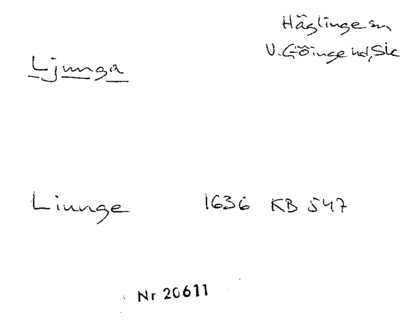 Häglinge sn
V. Göinge hd, Sk
Ljunga
Liunge 1636 KB 547
Nr 20611